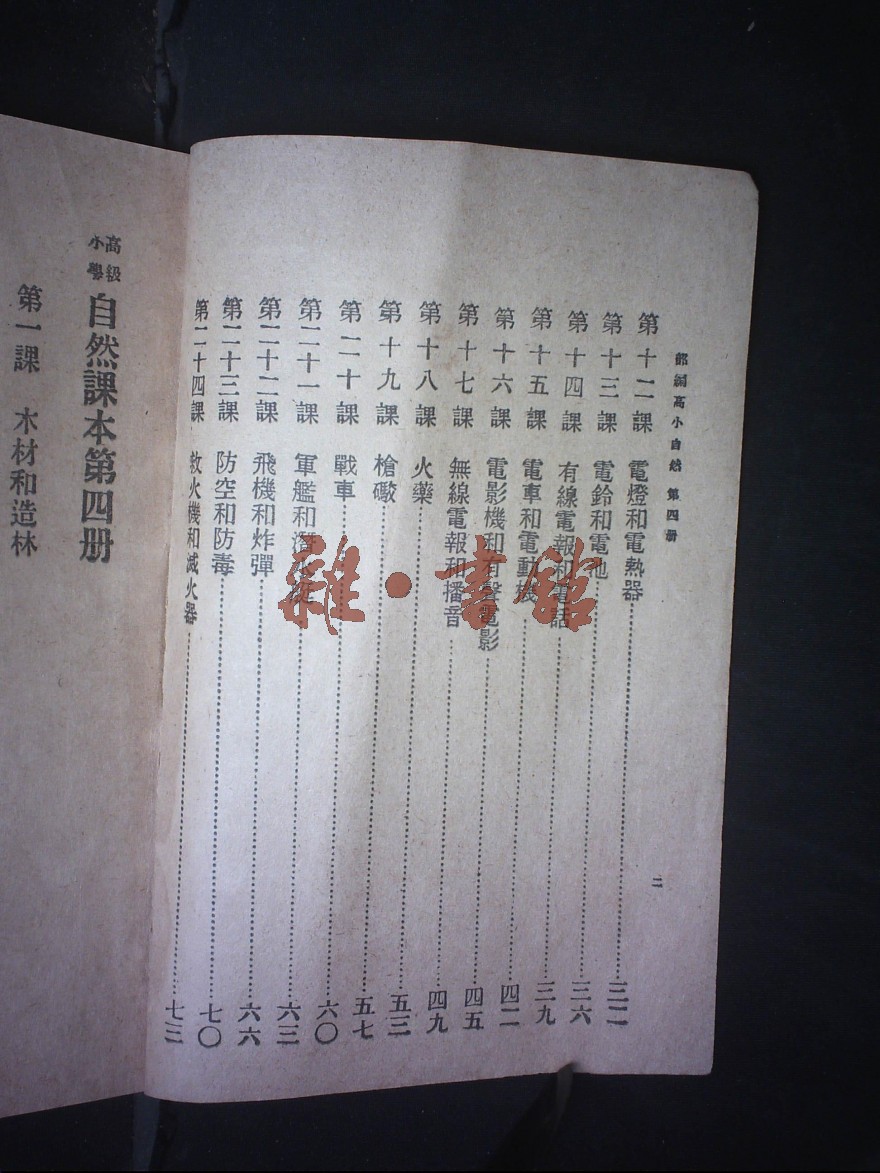 部編高小自然 第四册
第十二課 電燈和電熱器 三二
第十三課 電鈴和電池 三六
第十四課 有線電報和電話 三九
第十五課 電車和電動機 四二
第十六課 電影機和有聲電影 四五
第十七課 無線電報和播音 四九
第十八課 火藥 五三
第十九課 槍礮 五七
第二十課 戰車 六〇
第二十一課 軍艦和潛水艇 六三
第二十二課 飛機和炸彈 六六
第二十三課 防空和防毒 七〇
第二十四課 救火機和滅火器 七三
二
高級小學 自然課本第四册
第一課 木材和造林
雜·書館